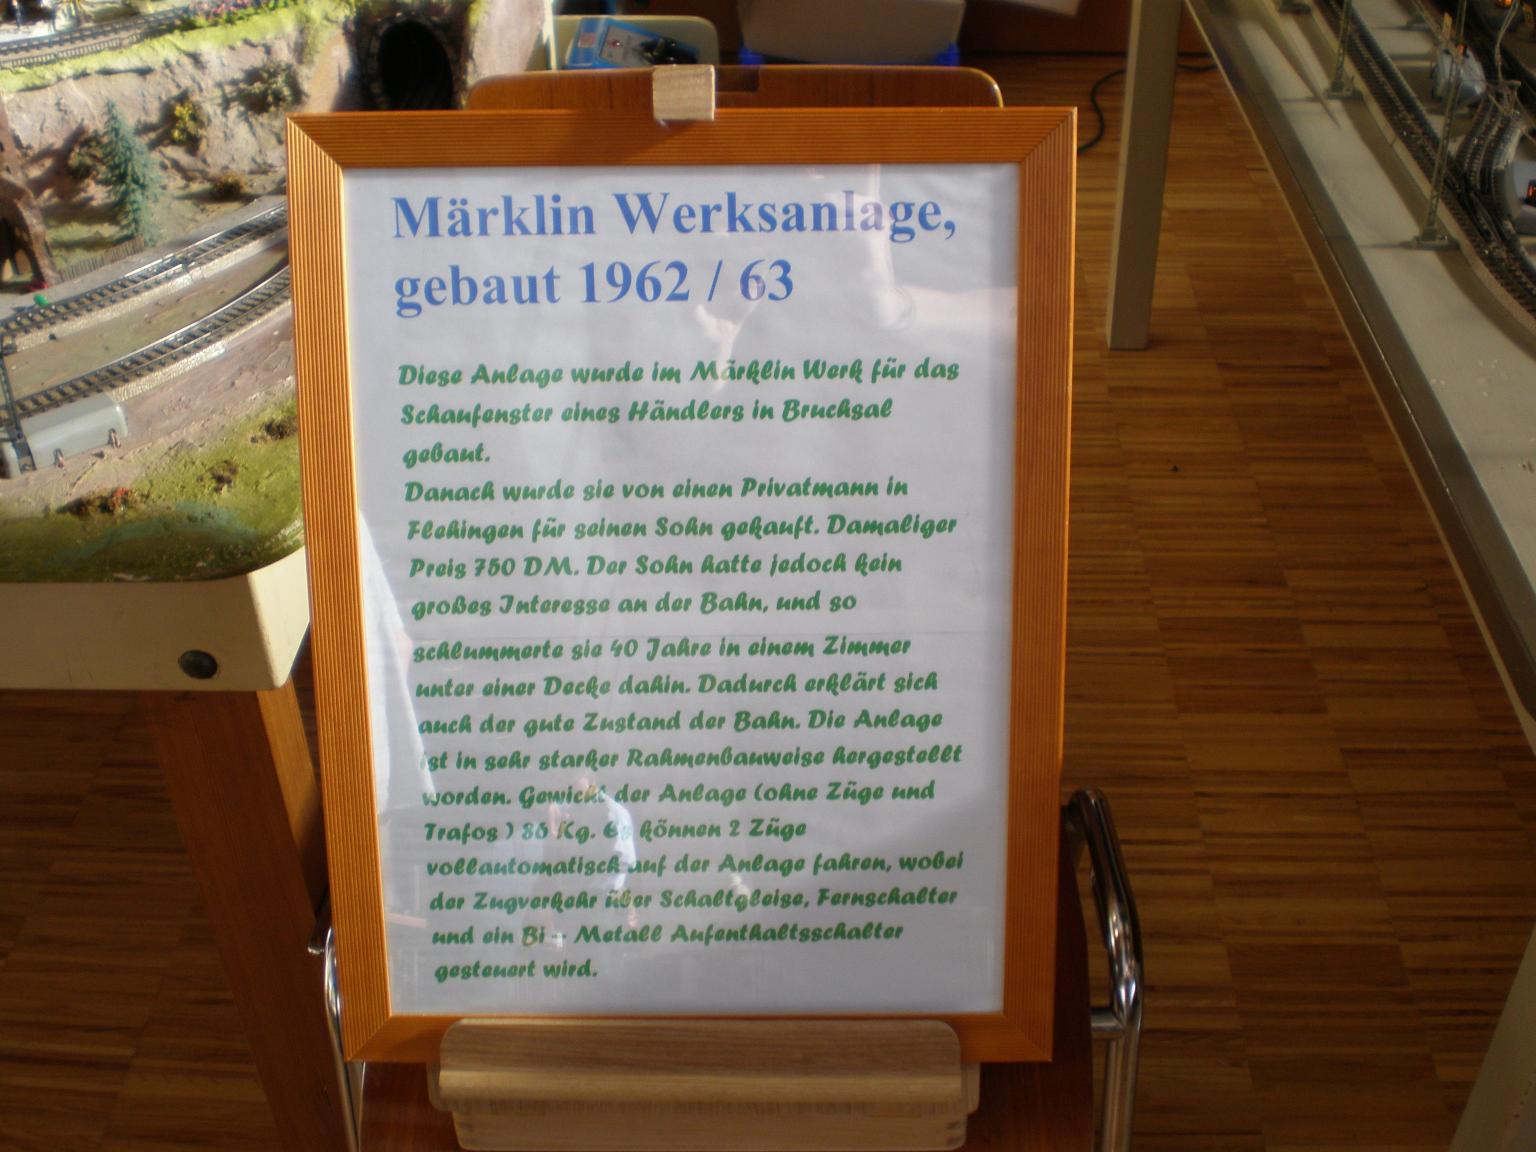 Märklin Werksanlage,
gebaut 1962 / 63
Diese Anlage wurde im Märklin Werk für das
Schaufenster eines Händlers in Bruchsal
gebaut.
Danach wurde sie von einen Privatmann in
Flehingen für seinen Sohn gekauft. Damaliger
Preis 750 DM. Der Sohn hatte jedoch kein
großes Interesse an der Bahn, und so
schlummerte sie 40 Jahre in einem Zimmer
unter einer Decke dahin. Dadurch erklärt sich
auch der gute Zustand der Bahn. Die Anlage
ist in sehr starker Rahmenbauweise hergestellt
worden. Gewicht der Anlage (ohne Züge und
Trafos ) 86 Kg. Es können 2 Züge
vollautomatisch auf der Anlage fahren, wobei
der Zugverkehr über Schaltgleise, Fernschalter
und ein Bi – Metall Aufenthaltsschalter
gesteuert wird.